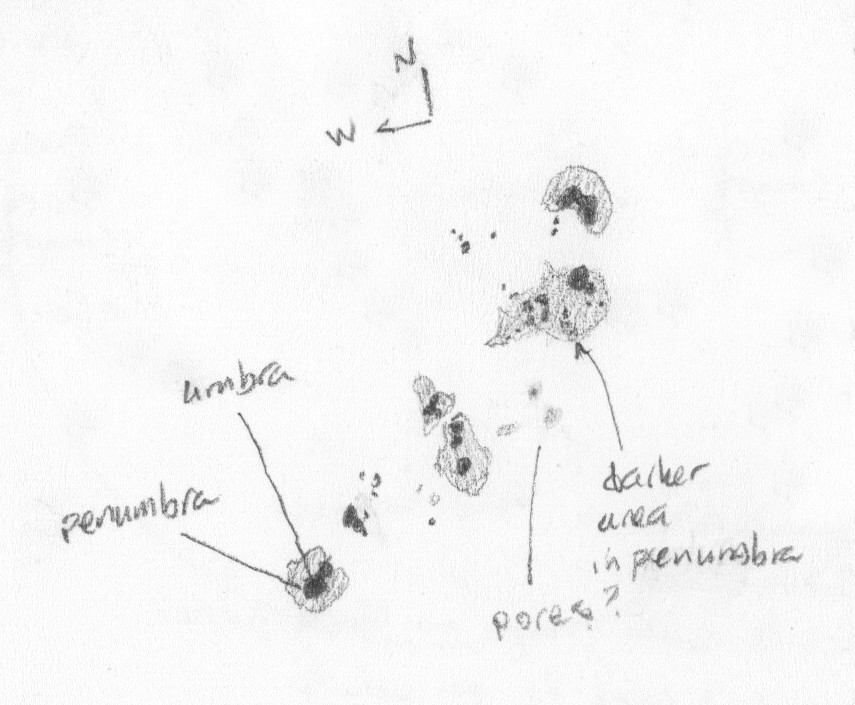 N
W
umbra
penumbra
darker
area
in penumbra
pores?